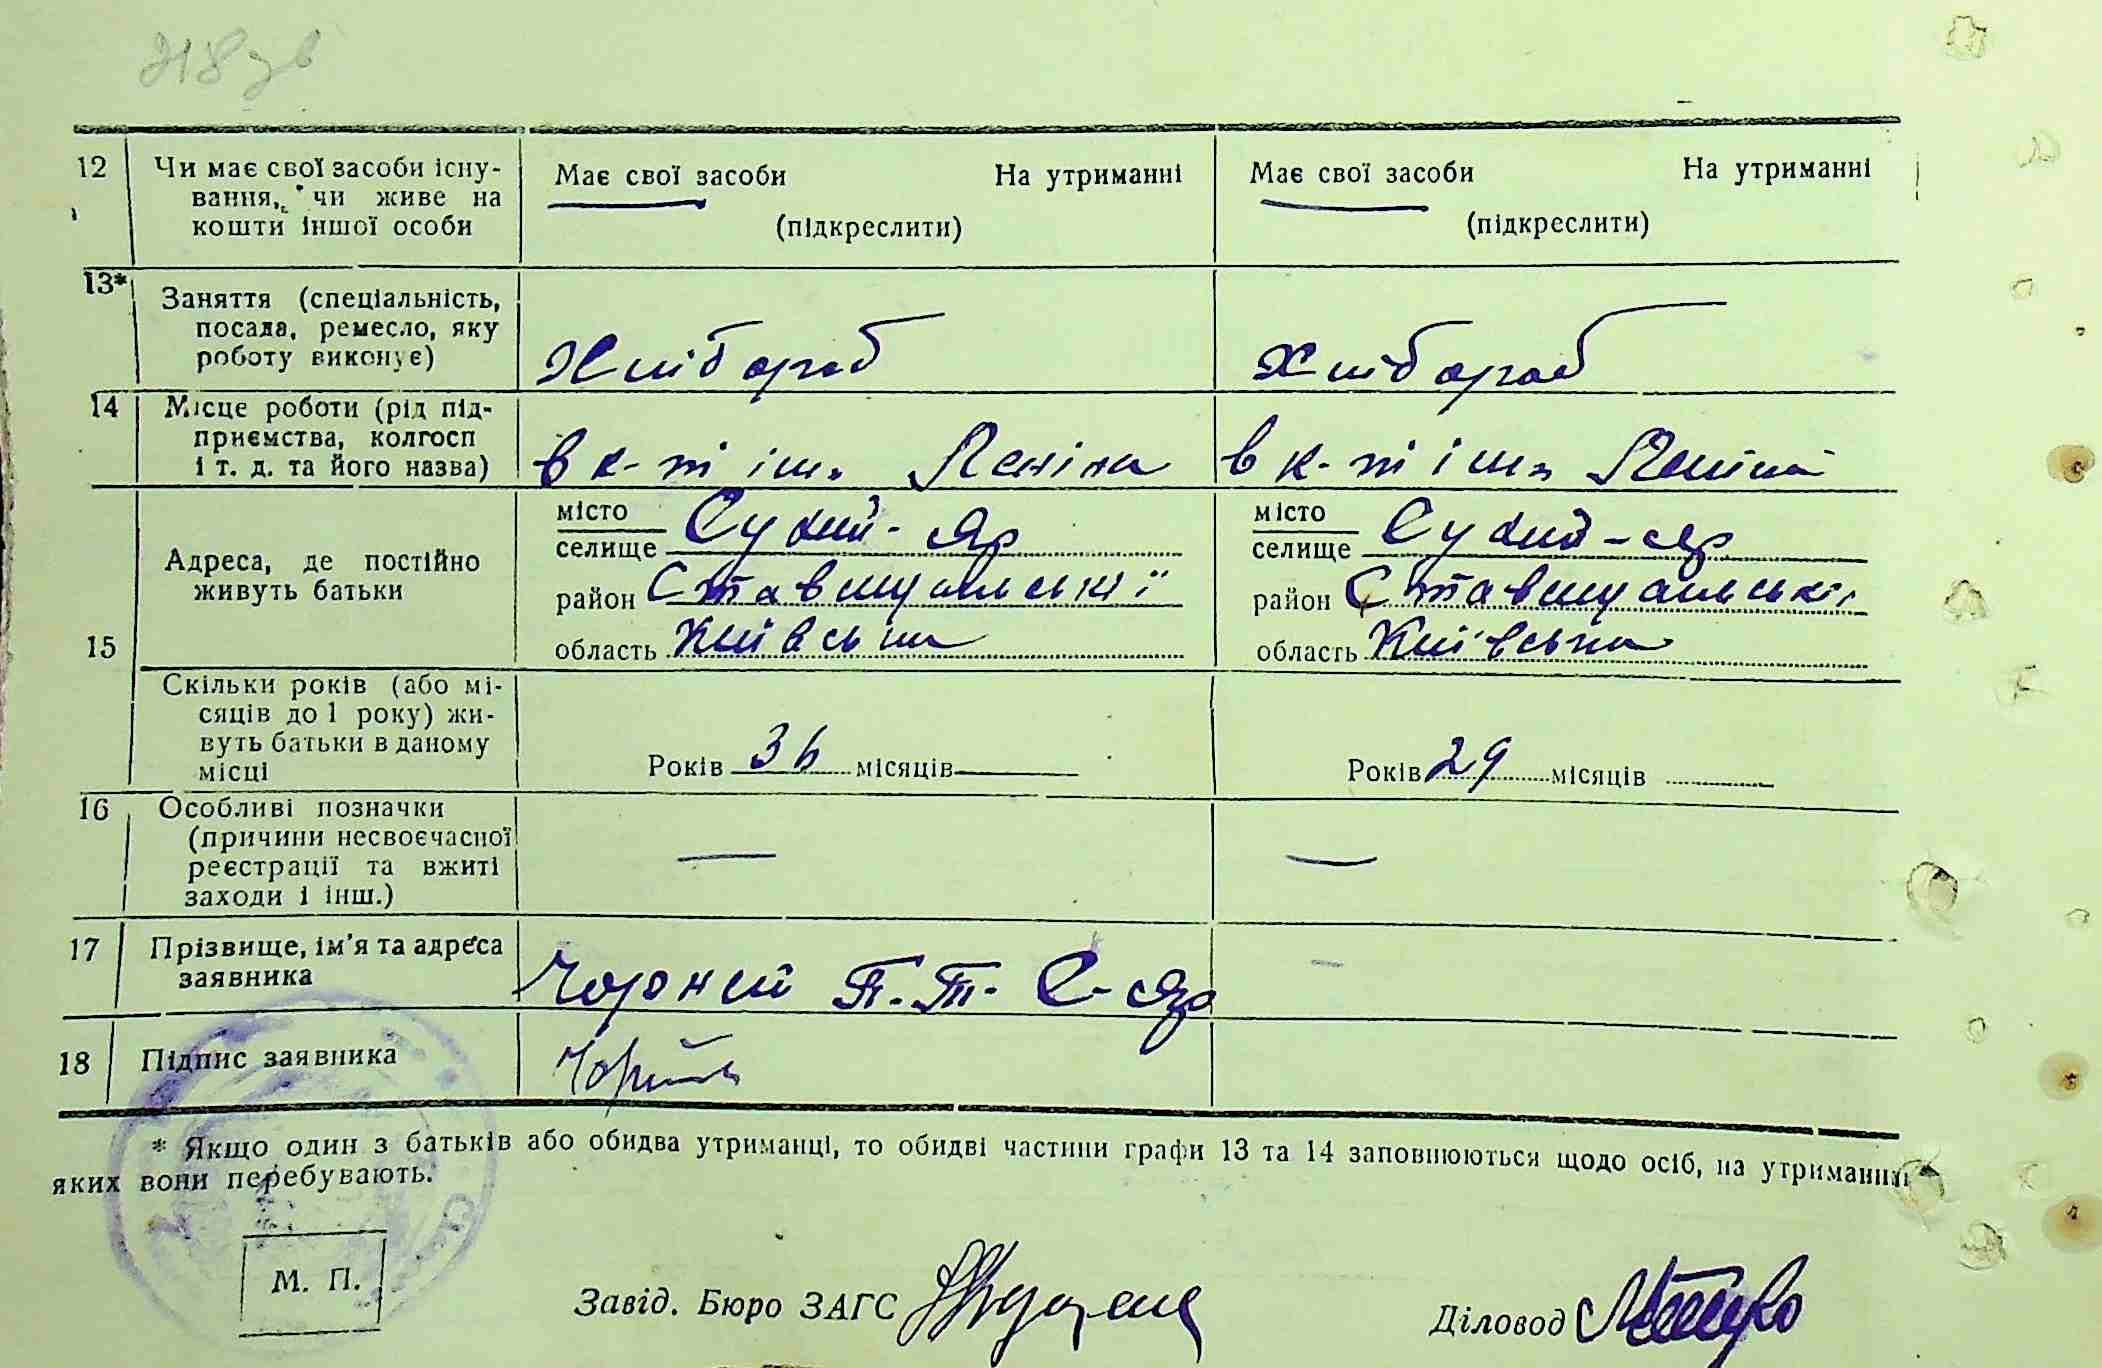 12 Чи має свої засоби існу-
вання, чи живе на
кошти іншої особи
Має свої засоби На утриманні
(підкреслити)
Має свої засоби На утриманні
(підкреслити)
13* Заняття (спеціальність,
посада, ремесло, яку
роботу виконує)
Хлібороб
Хлібороб
14 Місце роботи (рід під-
приємства, колгосп
і т. д. та його назва)
в к-пі ім. Леніна
в к-пі ім. Леніна
15 Адреса, де постійно
живуть батьки
місто
селище Сухий-Яр
район Ставищанський
область Київська
місто
селище Сухий-Яр
район Ставищанський
область Київська
Скільки років (або мі-
сяців до 1 року) жи-
вуть батьки в даному
місці
Років 36 місяців
Років 29 місяців
16 Особливі позначки
(причини несвоєчасної
реєстрації та вжиті
заходи і інш.)
—
—
17 Прізвище, ім'я та адреса
заявника
Чорний П. Т. С-Яр
—
18 Підпис заявника
* Якщо один з батьків або обидва утриманці, то обидві частини графи 13 та 14 заповнюються щодо осіб, на утриманні
яких вони перебувають.
М. П.
Завід. Бюро ЗАГС
Діловод